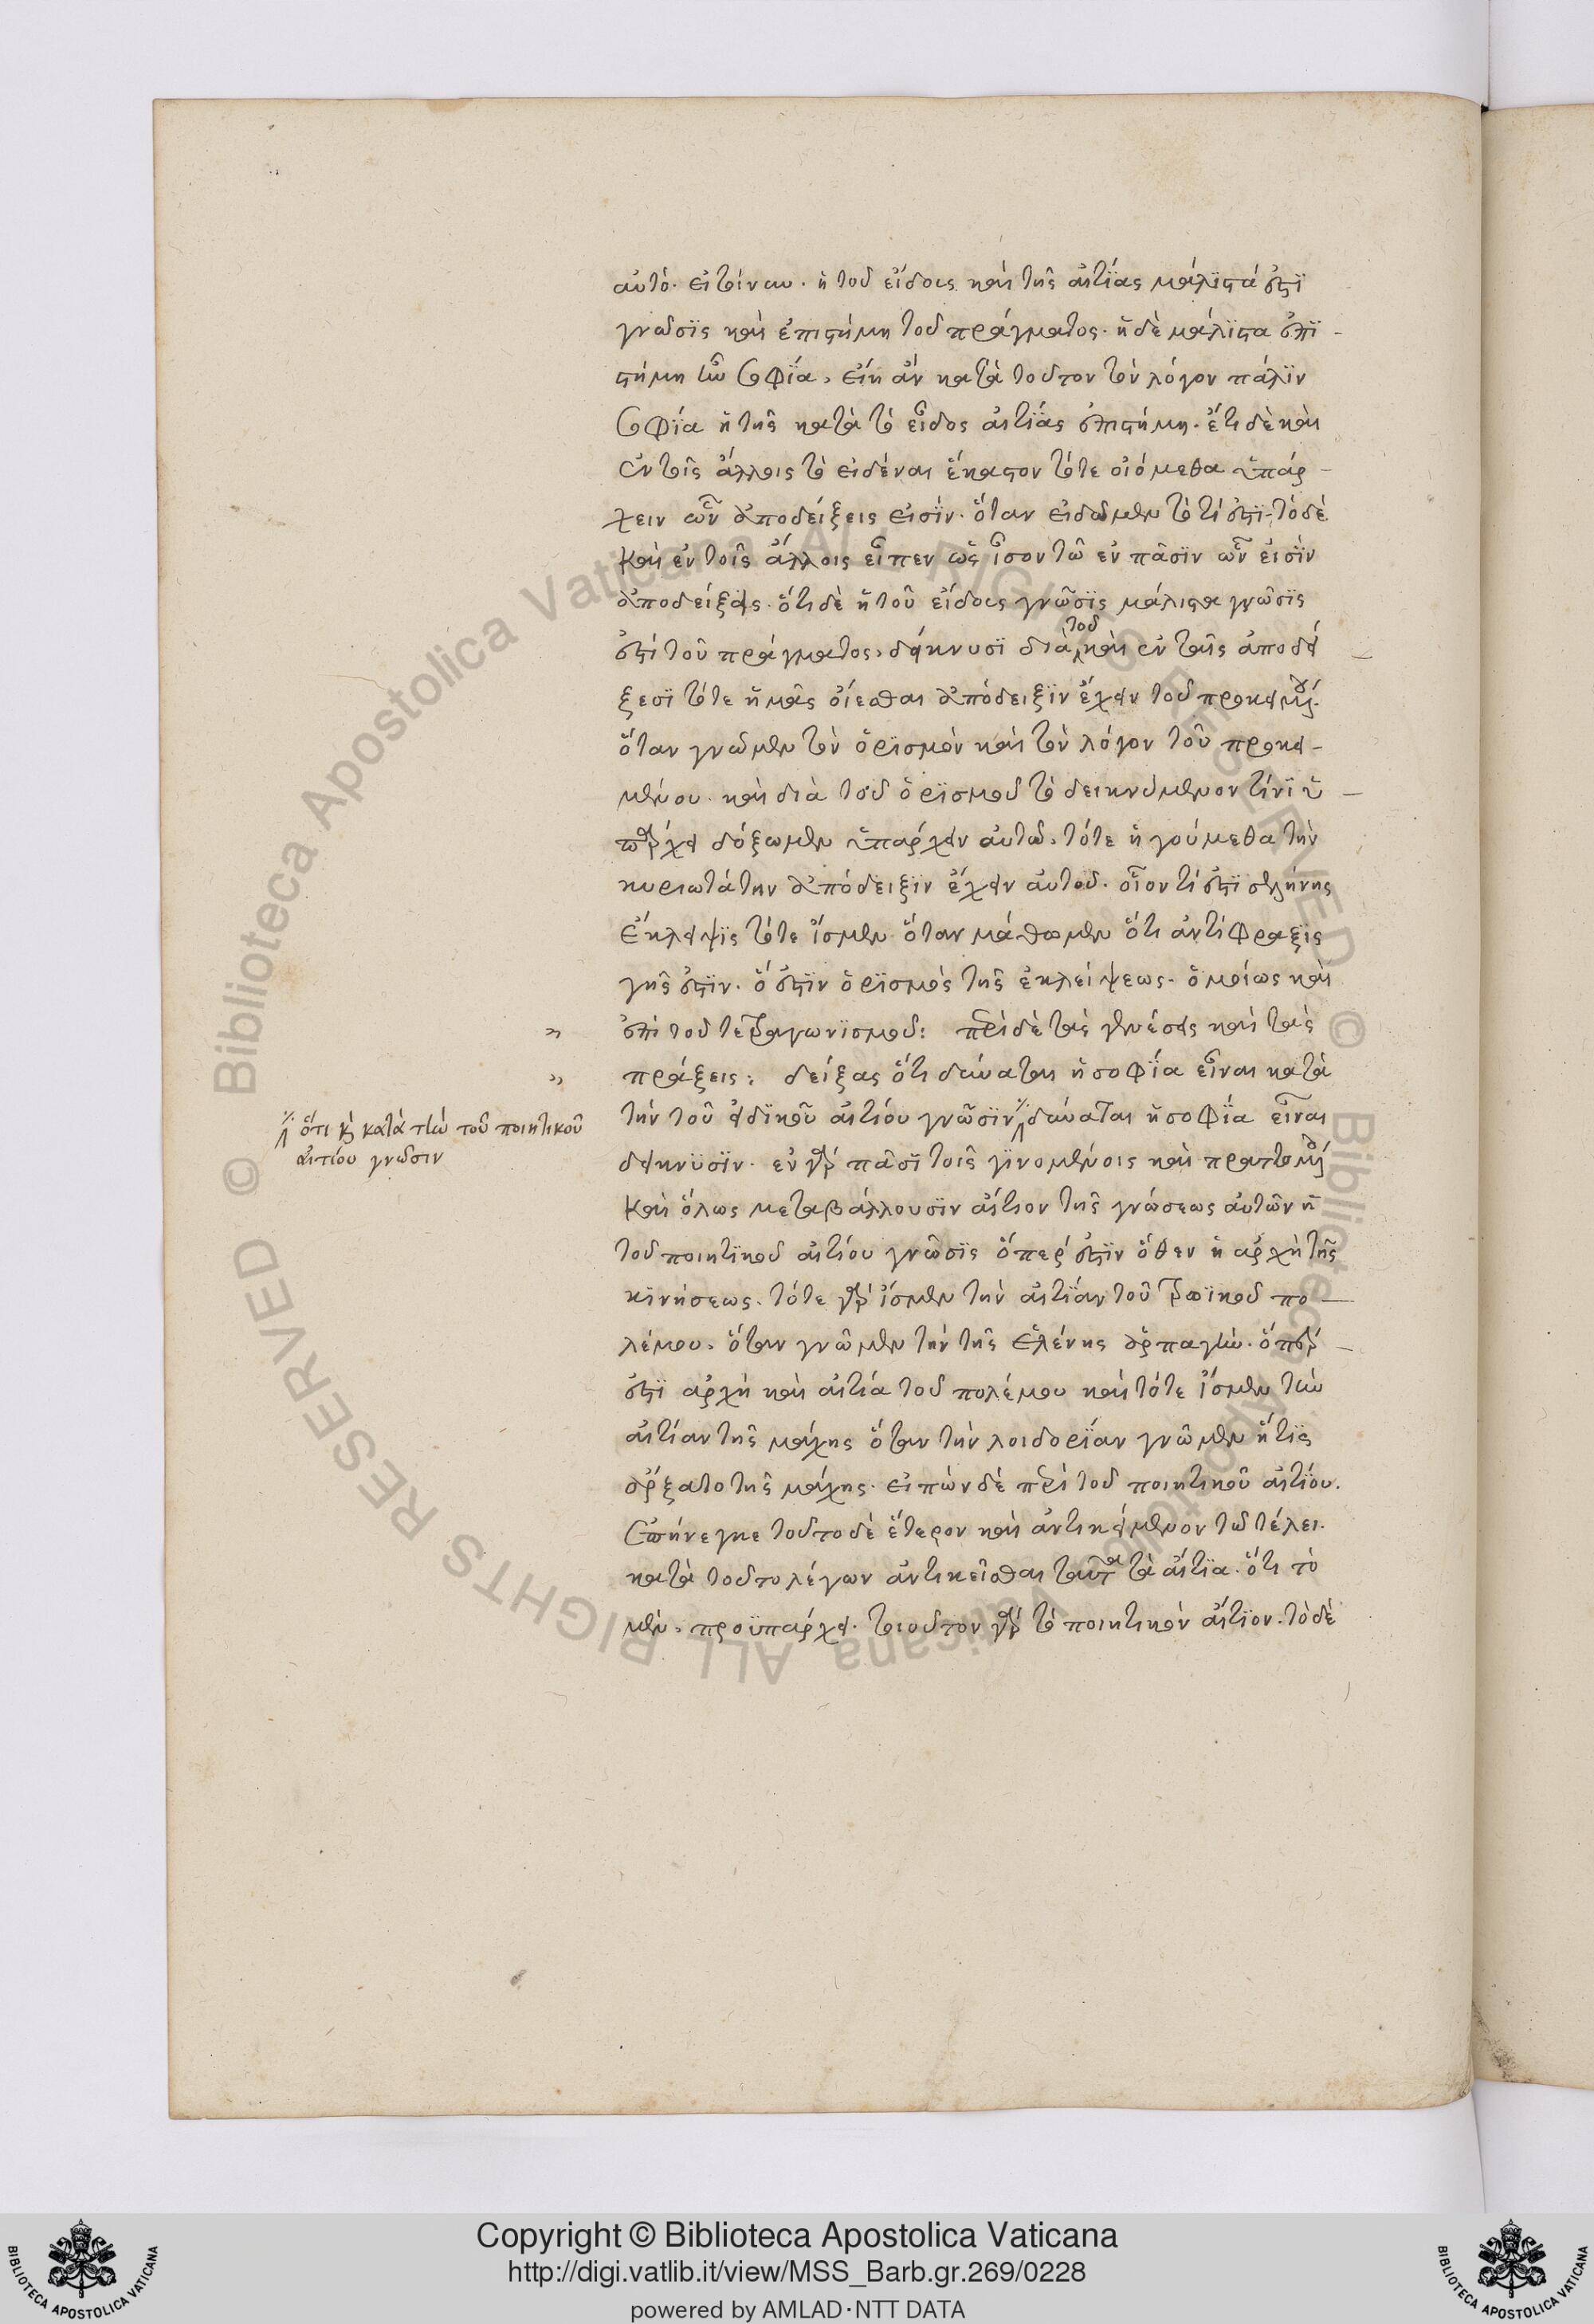 αὐτό. εἰ τοίνυν. ἡ τοῦ εἴδους καὶ τῆς αἰτίας μάλιστά ἐστι
γνῶσις καὶ ἐπιστήμη τοῦ πράγματος. ἡ δὲ μάλιστα ἐπι-
στήμη ἦν σοφία, εἴη ἂν κατὰ τοῦτον τὸν λόγον πάλιν
σοφία ἡ τῆς κατὰ τὸ εἶδος αἰτίας ἐπιστήμη. ἔτι δὲ καὶ
ἐν τοῖς ἄλλοις τὸ εἰδέναι ἕκαστον τότε οἰόμεθα ὑπάρ-
χειν ὧν ἀποδείξεις εἰσίν. ὅταν εἰδῶμεν τὸ τί ἐστι. τὸ δὲ
καὶ ἐν τοῖς ἄλλοις εἶπεν ὡς ἴσον τῷ ἐν πᾶσιν ὧν εἰσὶν
ἀποδείξεις. ὅτι δὲ ἡ τοῦ εἴδους γνῶσις μάλιστα γνῶσις
ἐστὶ τοῦ πράγματος, δείκνυσι διὰ τοῦ καὶ ἐν ταῖς ἀποδεί-
ξεσι τότε ἡμᾶς οἴεσθαι ἀπόδειξιν ἔχειν τοῦ προκειμένου.
ὅταν γνῶμεν τὸν ὁρισμὸν καὶ τὸν λόγον τοῦ προκει-
μένου. καὶ διὰ τοῦ ὁρισμοῦ τὸ δεικνύμενον τίνι ὑ-
πάρχει δόξωμεν ὑπάρχειν αὐτῷ. τότε ἡγούμεθα τὴν
κυριωτάτην ἀπόδειξιν ἔχειν αὐτοῦ. οἷον τί ἐστι σελήνης
ἔκλειψις τότε ἴσμεν ὅταν μάθωμεν ὅτι ἀντίφραξις
γῆς ἐστιν. ὅ ἐστιν ὁρισμὸς τῆς ἐκλείψεως. ὁμοίως καὶ
» ἐπὶ τοῦ τετραγωνισμοῦ: περὶ δὲ τὰς γενέσεις καὶ τὰς
» πράξεις: δείξας ὅτι δύναται ἡ σοφία εἶναι κατὰ
τὴν τοῦ εἰδικοῦ αἰτίου γνῶσιν δύναται ἡ σοφία εἶναι
ὅτι καὶ κατὰ τὴν τοῦ ποιητικοῦ
αἰτίου γνῶσιν
δείκνυσιν. ἐν γὰρ πᾶσι τοῖς γινομένοις καὶ πραττομένοις
καὶ ὅλως μεταβάλλουσιν αἴτιον τῆς γνώσεως αὐτῶν ἡ
τοῦ ποιητικοῦ αἰτίου γνῶσις ὅπερ ἐστὶν ὅθεν ἡ ἀρχὴ τῆς
κινήσεως. τότε γὰρ ἴσμεν τὴν αἰτίαν τοῦ τρωϊκοῦ πο-
λέμου. ὅταν γνῶμεν τὴν τῆς ἑλένης ἁρπαγήν. ὅπερ
ἐστὶ ἀρχὴ καὶ αἰτία τοῦ πολέμου καὶ τότε ἴσμεν τὴν
αἰτίαν τῆς μάχης ὅταν τὴν λοιδορίαν γνῶμεν ἥτις
ἦρξατο τῆς μάχης. εἰπὼν δὲ περὶ τοῦ ποιητικοῦ αἰτίου.
ἐπήνεγκε τοῦτο δὲ ἕτερον καὶ ἀντικείμενον τῷ τέλει.
κατὰ τοῦτο λέγων ἀντικεῖσθαι ταῦτα τὰ αἴτια. ὅτι τὸ
μὲν, προϋπάρχει. τοιοῦτον γὰρ τὸ ποιητικὸν αἴτιον. τὸ δὲ
Copyright © Biblioteca Apostolica Vaticana
http://digi.vatlib.it/view/MSS_Barb.gr.269/0228
powered by AMLAD·NTT DATA